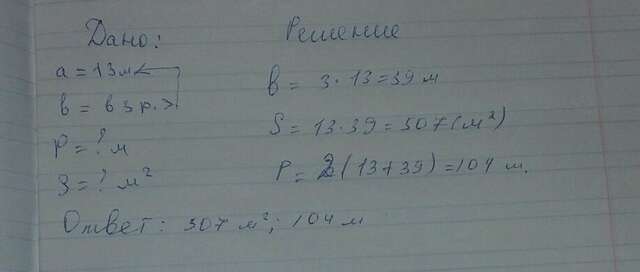 Дано:
Решение
a = 13 м
в = в 3 р. >
P = ? м
S = ? м²
в = 3 · 13 = 39 м
S = 13 · 39 = 507 (м²)
P = 2 (13 + 39) = 104 м.
Ответ: 507 м²; 104 м